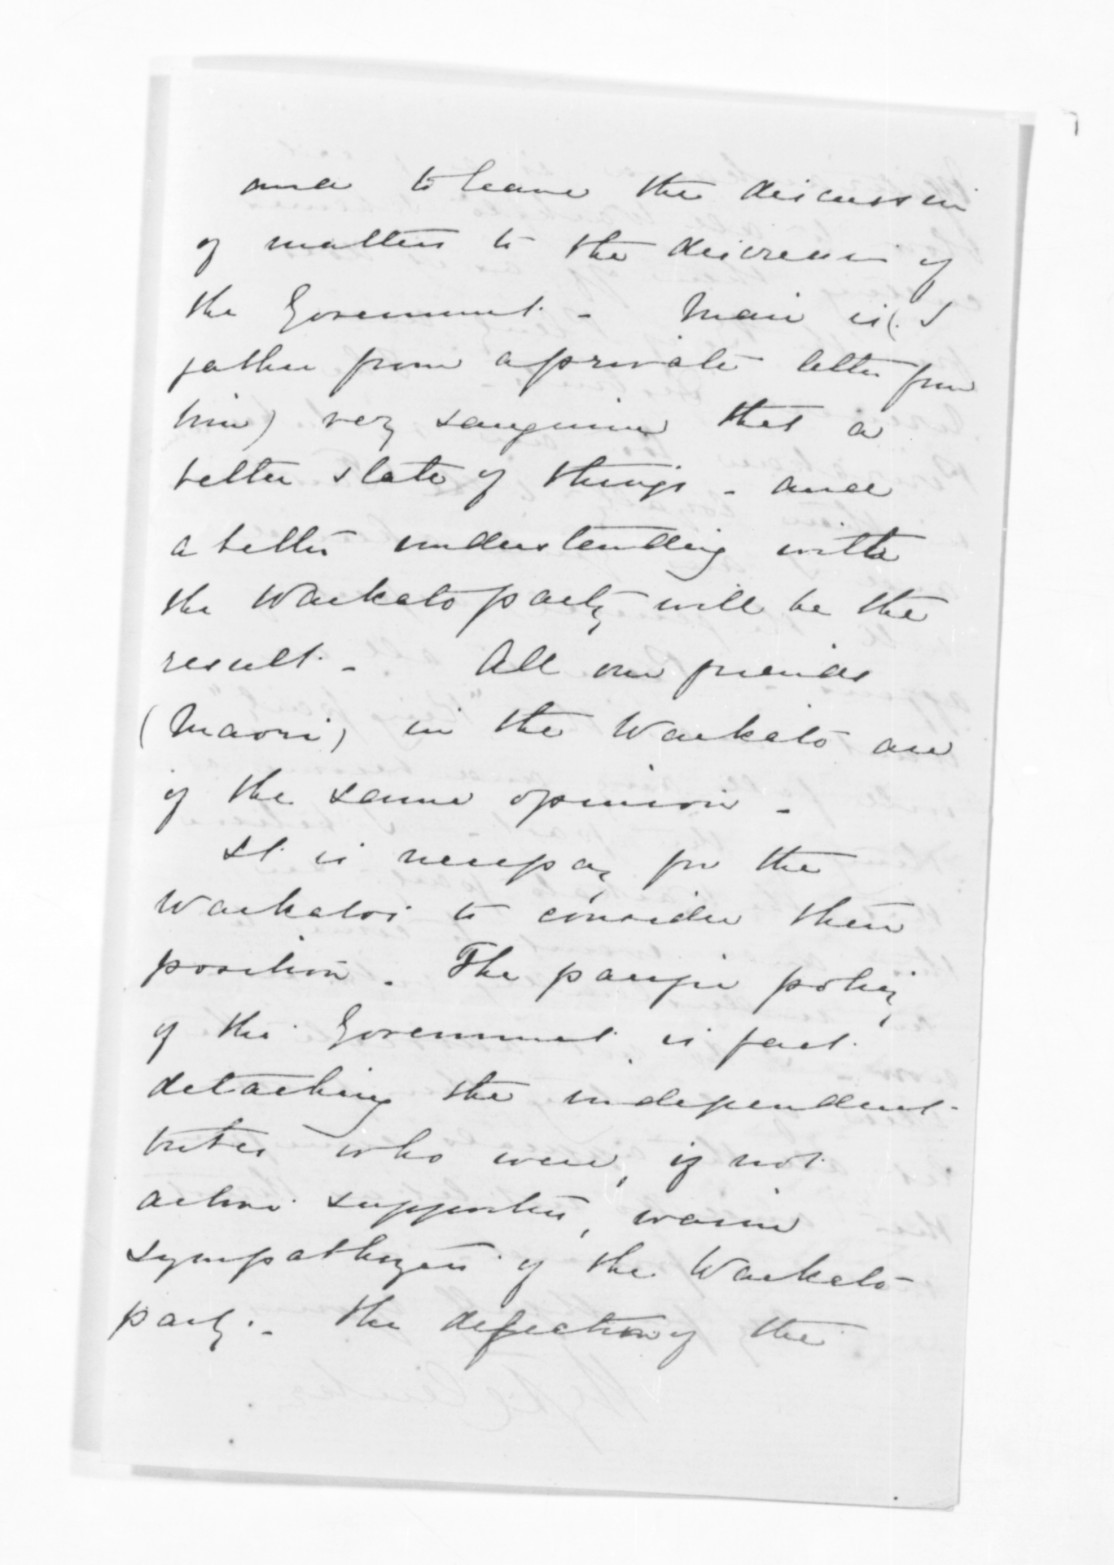 and to leave the discussion
of matters to the discretion of
the Government - Mair is (I
gather from a private letter from
him) very sanguine that a
better state of things - and
a better understanding with
the Waikato party will be the
result - All our friends
(Maori) in the Waikato are
of the same opinion -
It is necessary for the
Waikatos to consider their
position - The pacific policy
of the Government is fast
detaching the independent
tribes who were, if not
active supporters, warm
sympathizers of the Waikato
party - The defection of the